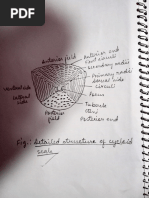 Anterior field
Anterior end
secondary radii
Primary radii
dorsal side
circuli
lateral
side
Focus
Tubercle
Posterior
field
Posterior end
Fig:- Detailed structure of cycloid
scale